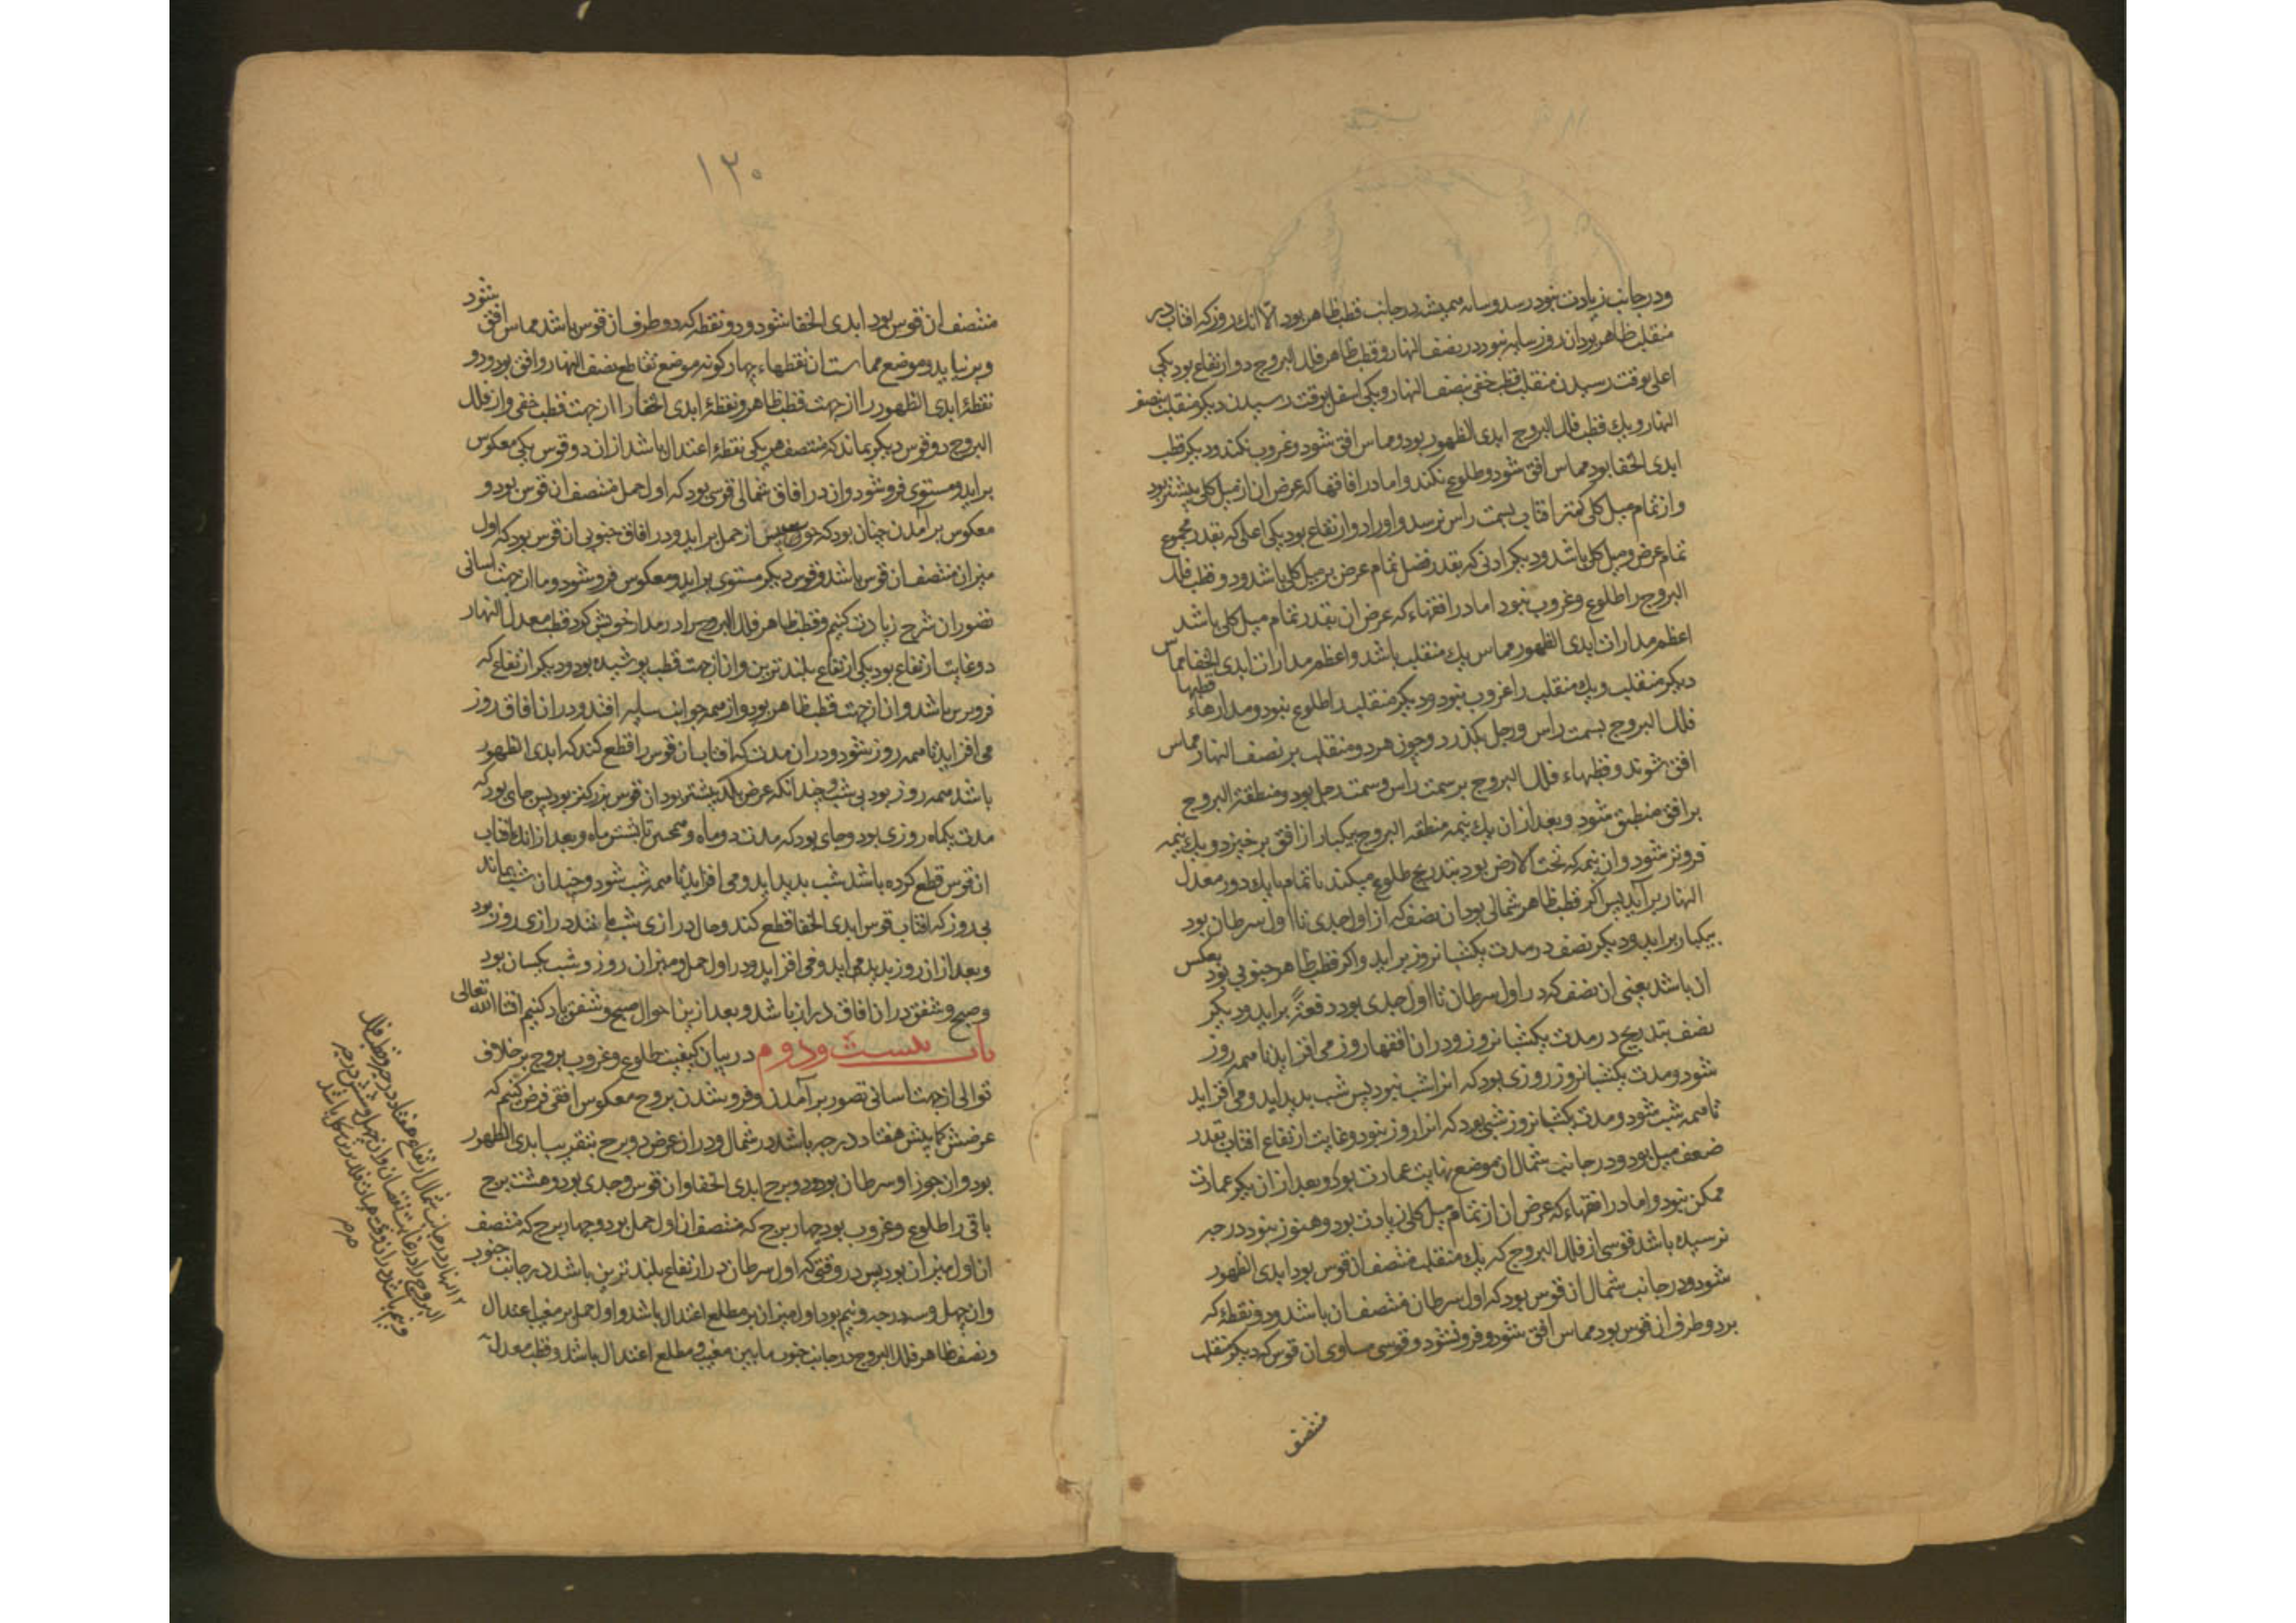 ودر جانب زیادت نبود رسد وسایه همیشه در جانب قطب ظاهر بود الا انک روز که افتاب در
منقلب ظاهر بود ان روز سایه نبود در نصف النهار وقطب ظاهر فلک البروج دو ارتفاع بود یکی
اعلی بوقت رسیدن منقلب قطب خفی بنصف النهار ویکی اسفل بوقت رسیدن دیکر منقلب بنصف
النهار ویک قطب فلک البروج ابدی الظهور بود ومماس افق شود وغروب نکند ودیکر قطب
ابدی الخفا بود مماس افق شود وطلوع نکند واما در افاقها که عرض ان از میل کلی بیشتر بود
واز تمام میل کلی کمتر افتاب بسمت راس نرسد واورا دو ارتفاع بود یکی اعلی که بقدر مجموع
تمام عرض ومیل کلی باشد ودیکر ادنی که بقدر فضل تمام عرض بر میل کلی باشد ودو قطب فلک
البروج را طلوع وغروب نبود اما در افقهاء که عرض ان بقدر تمام میل کلی باشد
اعظم مدارات ابدی الظهور مماس یک منقلب باشد واعظم مدارات ابدی الخفا مماس
دیکر منقلب ویک منقلب را غروب نبود ودیکر منقلب را طلوع نبود ومدارهاء قطبها
فلک البروج بسمت راس ورجل بکذرد وچون هر دو منقلب بر نصف النهار مماس
افق شوند وقطبهاء فلک البروج بر سمت راس وسمت رجل بود ومنطقة البروج
بر افق منطبق شود وبعد از ان یک نیمه منطقه البروج بیکبار از افق بر خیزد ویک نیمه
فروتر شود وان نیمه که تحت الارض بود بتدریج طلوع میکند تا تمام با یک دور معدل
النهار براید پس اکر قطب ظاهر شمالی بود ان نصف که از اول جدی تا اول سرطان بود
بیکبار براید ودیکر نصف در مدت یکشبانروز براید واکر قطب ظاهر جنوبی بود بعکس
ان باشد یعنی ان نصف که در اول سرطان تا اول جدی بود دفعةً براید ودیکر
نصف بتدریج در مدت یکشبانروز ودر ان افقها روز می افزاید تا همه روز
شود ومدت یکشبانروز روزی بود که انرا شب نبود پس شب بدید اید ومی افزاید
تا همه شب شود ومدت یکشبانروز شبی بود که انرا روز نبود وغایت ارتفاع افتاب بقدر
ضعف میل بود ودر جانب شمال ان موضع نهایت عمارت بود وبعد از ان دیکر عمارت
ممکن نبود واما در افقهاء که عرض ان از تمام میل کلی زیادت بود وهنوز بنود درجه
نرسیده باشد قوسی از فلک البروج که یک منقلب منتصف ان قوس بود ابدی الظهور
شود ودر جانب شمال ان قوس بود که اول سرطان منتصف ان باشد ودو نقطهٔ که
بر دو طرف ان قوس بود مماس افق شود وفرو نشود وقوسی مساوی ان قوس که دیکر منقلب
منتصف
۱۲۰
منتصف ان قوس بود ابدی الخفا شود ودو نقطه که دو طرف ان قوس باشد مماس افق شود
وبر نیاید وموضع مماست ان نقطهاء چهارکونه موضع تقاطع نصف النهار وافق بود ودو
نقطهٔ ابدی الظهور را از جهت قطب ظاهر ونقطهٔ ابدی الخفا را از جهت قطب خفی واز فلک
البروج دو قوس دیکر بماند که منتصف هر یکی نقطهٔ اعتدال باشد از ان دو قوس یکی معکوس
براید ومستوی فرو شود وان در افاق شمالی قوسی بود که اول حمل منتصف ان قوس بود و
معکوس برآمدن چنان بود که حوت پیش از حمل براید ودر افاق جنوبی ان قوس بود که اول
میزان منتصف ان قوس باشد وقوس دیکر مستوی براید ومعکوس فرو شود وما از جهت اسانی
تصور ان شرح زیادت کنیم وقطب ظاهر فلک البروج را در مدار خویش کرد قطب معدل النهار
دو غایت ارتفاع بود یکی ارتفاع بلندترین وان از جهت قطب پوشیده بود ودیکر ارتفاع که
فروترین باشد وان از جهت قطب ظاهر بود واز همه جوانب سایه افتد ودر ان افاق روز
می افزاید تا همه روز شود ودر ان مدت که افتاب ان قوس را قطع کند که ابدی الظهور
باشد همه روز بود بی شب وچندانکه عرض بلد بیشتر بود ان قوس بزرکتر بود پس جای بود که
مدت یکماه روزی بود وجای بود که مدت دو ماه وهمچنین تا بشش ماه وبعد از انک افتاب
ان قوس قطع کرده باشد شب بدید اید ومی افزاید تا همه شب شود وچندان شب بماند
بی روز که افتاب قوس ابدی الخفا قطع کند وحال درازی شب مانند درازی روز بود
وبعد از ان روز بدید می اید ومی افزاید ودر اول حمل ومیزان روز وشب یکسان بود
وصبح وشفق در ان افاق دراز باشد وبعد ازین احوال صبح وشفق یاد کنیم انشا الله تعالی
باب بیست ودوم در بیان کیفیت طلوع وغروب بروج بر خلاف
توالی از جهت اسانی تصور برآمدن وفرو شدن بروج معکوس افقی فرض کنیم که
عرضش کمابیش هفتاد درجه باشد در شمال ودر ان عرض دو برج بتقریب ابدی الظهور
بود وان جوزا وسرطان بود ودو برج ابدی الخفا وان قوس وجدی بود وهشت برج
باقی را طلوع وغروب بود چهار برج که منتصف ان اول حمل بود وچهار برج که منتصف
ان اول میزان بود پس در وقتی که اول سرطان در ارتفاع بلندترین باشد در جانب جنوب
وان چهل وسه درجه ونیم بود اول میزان بر مطلع اعتدال باشد واول حمل بر مغیب اعتدال
ونصف ظاهر فلک البروج در جانب جنوب مابین مغیب ومطلع اعتدال باشد وقطب معدل
النهار در جانب شمال ارتفاع هفتاد درجه وقطب فلک
البروج را در غایت نقصان وان چهل وشش درجه
ونیم باشد